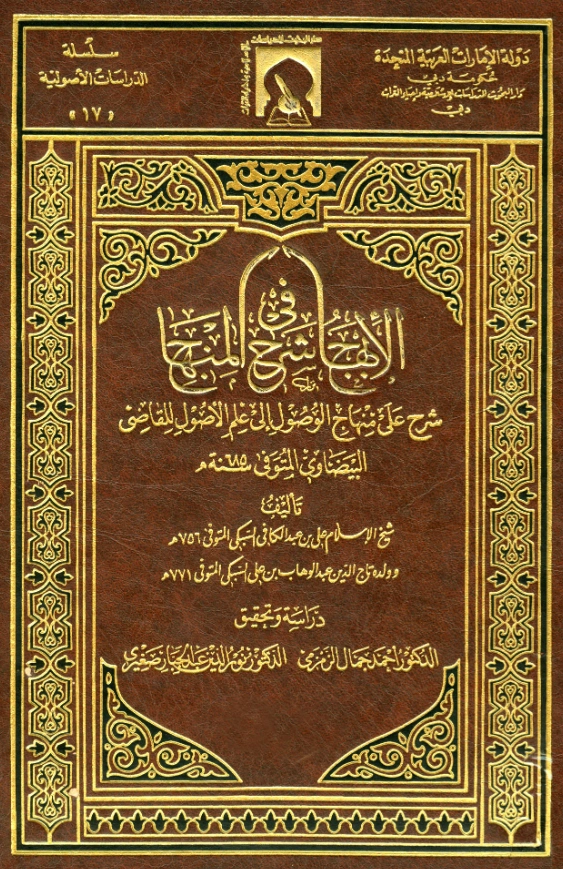 دولة الإمارات العربية المتحدة
حكومة دبي
دار البحوث للدراسات الإسلامية وإحياء التراث
دبي
سلسلة
الدراسات الأصولية
«١٧»
الإبهاج في شرح المنهاج
شرح على منهاج الوصول إلى علم الأصول للقاضي
البيضاوي المتوفى سنة ٦٨٥ هـ
تأليف
شيخ الإسلام علي بن عبد الكافي السبكي المتوفى ٧٥٦ هـ
وولده تاج الدين عبد الوهاب بن علي السبكي المتوفى ٧٧١ هـ
دراسة وتحقيق
الدكتور أحمد جمال الزمزمي الدكتور نور الدين عبد الجبار صغيري